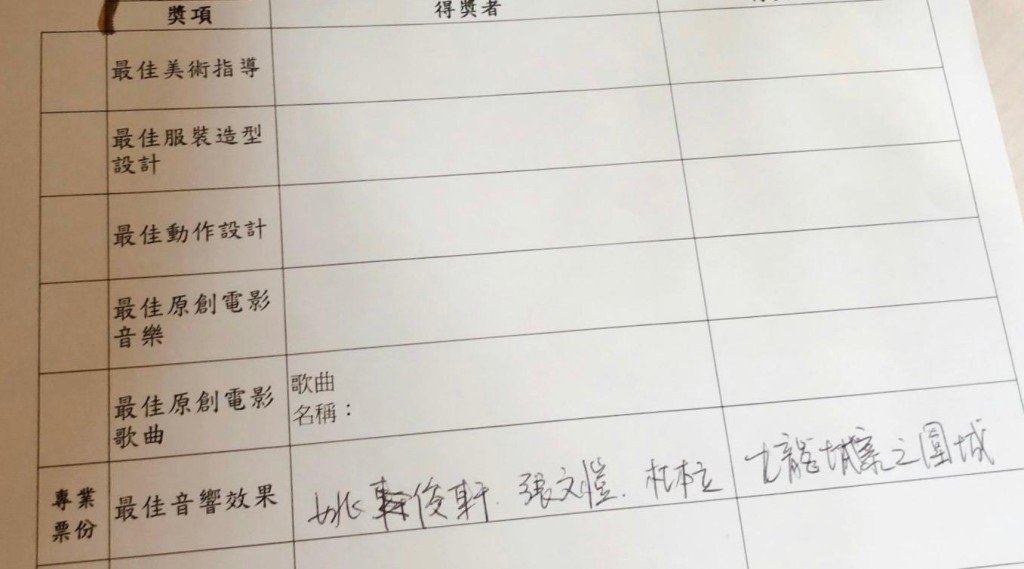 獎項 得獎者
最佳美術指導
最佳服裝造型
設計
最佳動作設計
最佳原創電影
音樂
最佳原創電影
歌曲
歌曲
名稱：
專業
票份
最佳音響效果
姚俊軒. 張文愷.
九龍城寨之圍城